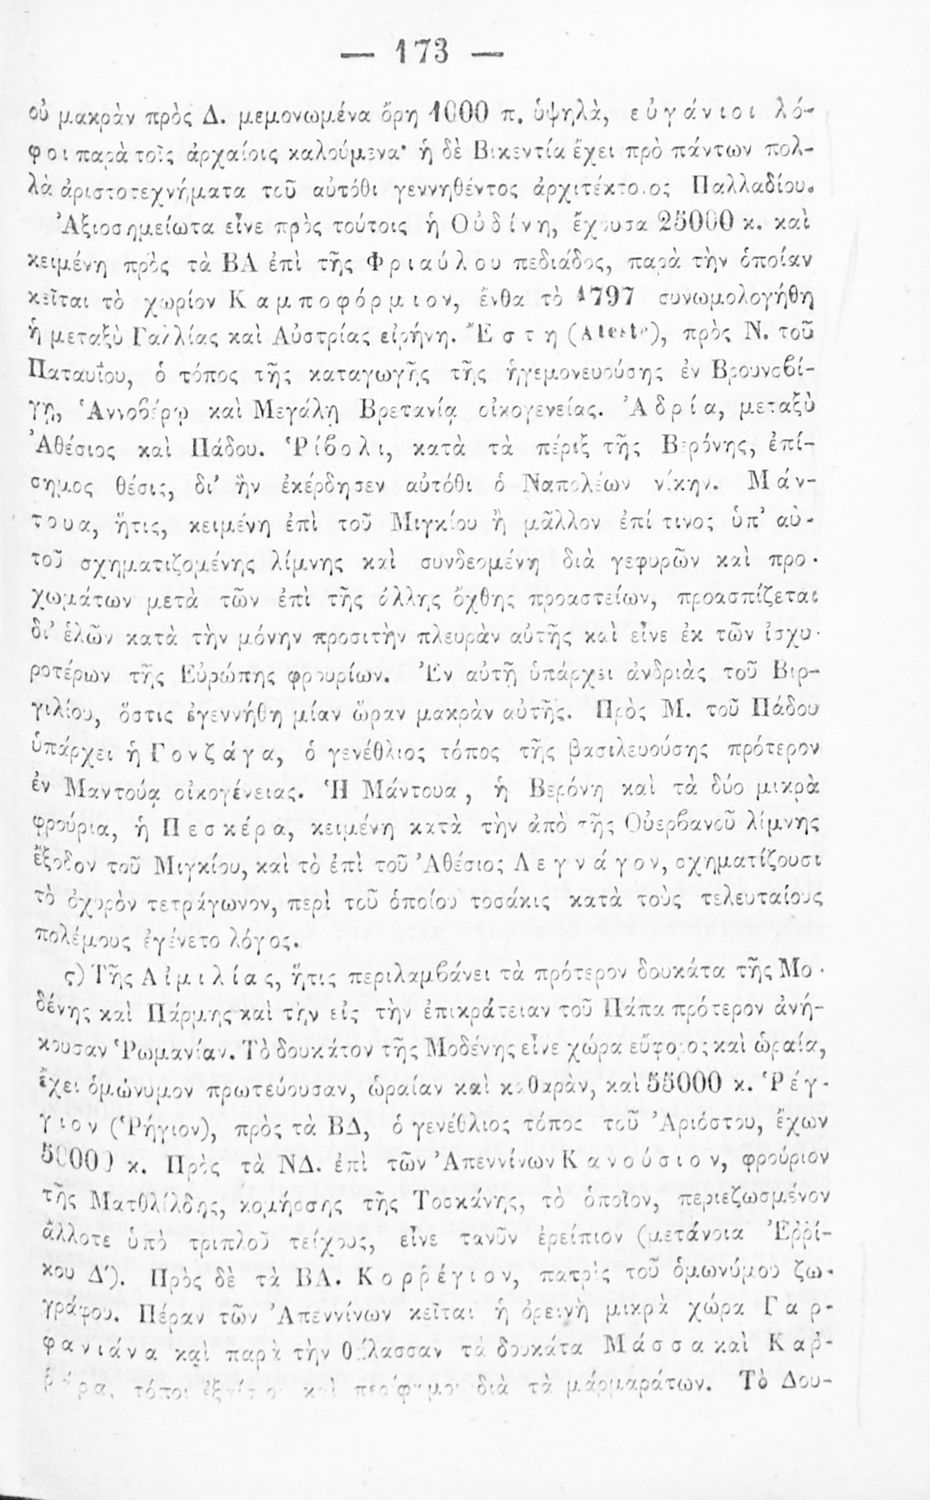 — 173 —
οὐ μακρὰν πρὸς Δ. μεμονωμένα ὄρη 1000 π. ὑψηλὰ, εὐγάνιοι λό-
φοι παρὰ τοῖς ἀρχαίοις καλούμενα· ἡ δὲ Βικεντία ἔχει πρὸ πάντων πολ-
λὰ ἀριστοτεχνήματα τοῦ αὐτόθι γεννηθέντος ἀρχιτέκτονος Παλλαδίου.
Ἀξιοσημείωτα εἶνε πρὸς τούτοις ἡ Οὐδίνη, ἔχουσα 25000 κ. καὶ
κειμένη πρὸς τὰ ΒΑ ἐπὶ τῆς Φριαύλου πεδιάδος, παρὰ τὴν ὁποίαν
κεῖται τὸ χωρίον Καμποφόρμιον, ἔνθα τὸ 1797 συνωμολογήθη
ἡ μεταξὺ Γαλλίας καὶ Αὐστρίας εἰρήνη. Ἔστη (Ateste), πρὸς Ν. τοῦ
Παταυΐου, ὁ τόπος τῆς καταγωγῆς τῆς ἡγεμονευούσης ἐν Βρουνσβί-
γῃ, Ἀννοβέρῳ καὶ Μεγάλῃ Βρετανίᾳ οἰκογενείας. Ἀδρία, μεταξὺ
Ἀθέσιος καὶ Πάδου. Ῥίβολι, κατὰ τὰ πέριξ τῆς Βερόνης, ἐπί-
σημος θέσις, δι' ἣν ἐκέρδησεν αὐτόθι ὁ Ναπολέων νίκην. Μάν-
τουα, ἥτις, κειμένη ἐπὶ τοῦ Μιγκίου ἢ μᾶλλον ἐπί τινος ὑπ' αὐ-
τοῦ σχηματιζομένης λίμνης καὶ συνδεομένη διὰ γεφυρῶν καὶ προ-
χωμάτων μετὰ τῶν ἐπὶ τῆς ἄλλης ὄχθης προαστείων, προασπίζεται
δι' ἑλῶν κατὰ τὴν μόνην προσιτὴν πλευρὰν αὐτῆς καὶ εἶνε ἐκ τῶν ἰσχυ-
ροτέρων τῆς Εὐρώπης φρουρίων. Ἐν αὐτῇ ὑπάρχει ἀνδριὰς τοῦ Βιρ-
γιλίου, ὅστις ἐγεννήθη μίαν ὥραν μακρὰν αὐτῆς. Πρὸς Μ. τοῦ Πάδου
ὑπάρχει ἡ Γονζάγα, ὁ γενέθλιος τόπος τῆς βασιλευούσης πρότερον
ἐν Μαντούᾳ οἰκογένειας. Ἡ Μάντουα, ἡ Βερόνη καὶ τὰ δύο μικρὰ
φρούρια, ἡ Πεσκέρα, κειμένη κατὰ τὴν ἀπὸ τῆς Οὐερβανοῦ λίμνης
ἔξοδον τοῦ Μιγκίου, καὶ τὸ ἐπὶ τοῦ Ἀθέσιος Λεγνάγον, σχηματίζουσι
τὸ ὀχυρὸν τετράγωνον, περὶ τοῦ ὁποίου τοσάκις κατὰ τοὺς τελευταίους
πολέμους ἐγένετο λόγος.
ς) Τῆς Αἰμιλίας, ἥτις περιλαμβάνει τὰ πρότερον δουκάτα τῆς Μο-
δένης καὶ Πάρμης καὶ τὴν εἰς τὴν ἐπικράτειαν τοῦ Πάπα πρότερον ἀνή-
κουσαν Ῥωμανίαν. Τὸ δουκάτον τῆς Μοδένης εἶνε χώρα εὔφορος καὶ ὡραία,
ἔχει ὁμώνυμον πρωτεύουσαν, ὡραίαν καὶ καθαρὰν, καὶ 55000 κ. Ῥέγ-
γιον (Ῥήγιον), πρὸς τὰ ΒΔ, ὁ γενέθλιος τόπος τοῦ Ἀριόστου, ἔχων
50000 κ. Πρὸς τὰ ΝΔ. ἐπὶ τῶν Ἀπεννίνων Κανούσιον, φρούριον
τῆς Ματθλίλδης, κομήσσης τῆς Τοσκάνης, τὸ ὁποῖον, περιεζωσμένον
ἄλλοτε ὑπὸ τριπλοῦ τείχους, εἶνε τανῦν ἐρείπιον (μετάνοια Ἐῤῥί-
κου Δ'). Πρὸς δὲ τὰ ΒΑ. Κοῤῥέγιον, πατρὶς τοῦ ὁμωνύμου ζω-
γράφου. Πέραν τῶν Ἀπεννίνων κεῖται ἡ ὀρεινὴ μικρὰ χώρα Γαρ-
φανιάνα καὶ παρὰ τὴν θάλασσαν τὰ δουκάτα Μάσσα καὶ Καῤ-
ῥάρα, τόποι καὶ περίφημοι διὰ τὰ μάρμαράτων. Τὸ Δου-